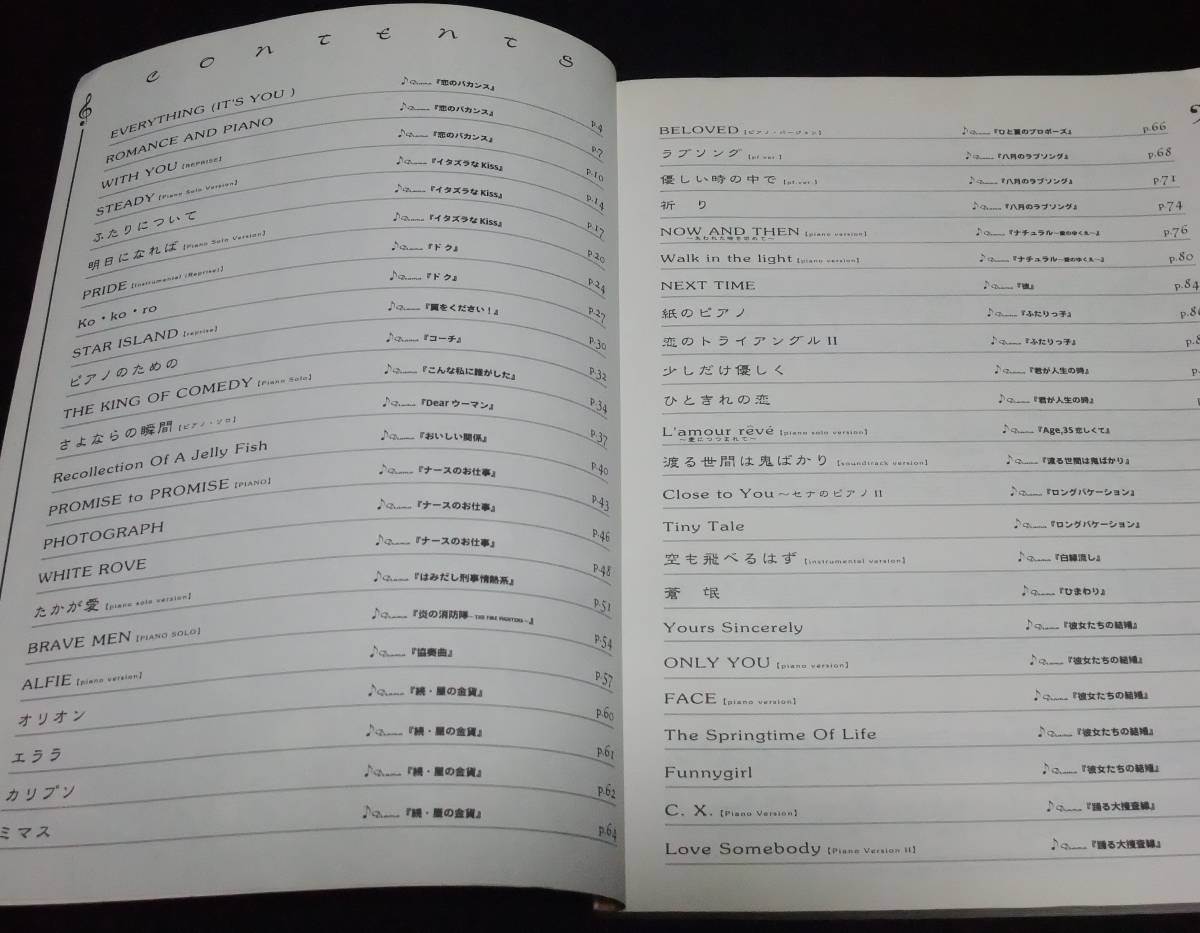 CONTENTS
EVERYTHING (IT'S YOU ) ♪Drama『恋のバカンス』 p.4
ROMANCE AND PIANO ♪Drama『恋のバカンス』 p.7
WITH YOU [REPRISE] ♪Drama『恋のバカンス』 p.10
STEADY [Piano Solo Version] ♪Drama『イタズラなKiss』 p.14
ふたりについて ♪Drama『イタズラなKiss』 p.17
明日になれば [Piano Solo Version] ♪Drama『イタズラなKiss』 p.20
PRIDE [Instrumental (Reprise)] ♪Drama『ドク』 p.24
Ko・ko・ro ♪Drama『ドク』 p.27
STAR ISLAND [reprise] ♪Drama『翼をください！』 p.30
ピアノのための ♪Drama『コーチ』 p.32
THE KING OF COMEDY [Piano Solo] ♪Drama『こんな私に誰がした』 p.34
さよならの瞬間 [ピアノ・ソロ] ♪Drama『Dearウーマン』 p.37
Recollection Of A Jelly Fish ♪Drama『おいしい関係』 p.40
PROMISE to PROMISE [PIANO] ♪Drama『ナースのお仕事』 p.43
PHOTOGRAPH ♪Drama『ナースのお仕事』 p.46
WHITE ROVE ♪Drama『ナースのお仕事』 p.48
たかが愛 [piano solo version] ♪Drama『はみだし刑事情熱系』 p.51
BRAVE MEN [PIANO SOLO] ♪Drama『炎の消防隊～THE FIRE FIGHTERS～』 p.54
ALFIE [piano version] ♪Drama『協奏曲』 p.57
オリオン ♪Drama『続・星の金貨』 p.60
エララ ♪Drama『続・星の金貨』 p.61
カリプソ ♪Drama『続・星の金貨』 p.62
ミマス ♪Drama『続・星の金貨』 p.64
BELOVED [ピアノ・バージョン] ♪Drama『ひと夏のプロポーズ』 p.66
ラブソング [pf.ver.] ♪Drama『八月のラブソング』 p.68
優しい時の中で [pf.ver.] ♪Drama『八月のラブソング』 p.71
祈り ♪Drama『八月のラブソング』 p.74
NOW AND THEN [piano version] ♪Drama『ナチュラル～愛のゆくえ～』 p.76
～失われた時を求めて～
Walk in the light [piano version] ♪Drama『ナチュラル～愛のゆくえ～』 p.80
NEXT TIME ♪Drama『彼』 p.84
紙のピアノ ♪Drama『ふたりっ子』
恋のトライアングルII ♪Drama『ふたりっ子』
少しだけ優しく ♪Drama『君が人生の時』
ひときれの恋 ♪Drama『君が人生の時』
L'amour rêvé [piano solo version] ♪Drama『Age,35 恋しくて』
～愛につつまれて～
渡る世間は鬼ばかり [soundtrack version] ♪Drama『渡る世間は鬼ばかり』
Close to You～セナのピアノII ♪Drama『ロングバケーション』
Tiny Tale ♪Drama『ロングバケーション』
空も飛べるはず [instrumental version] ♪Drama『白線流し』
蒼　氓 ♪Drama『ひまわり』
Yours Sincerely ♪Drama『彼女たちの結婚』
ONLY YOU [piano version] ♪Drama『彼女たちの結婚』
FACE [piano version] ♪Drama『彼女たちの結婚』
The Springtime Of Life ♪Drama『彼女たちの結婚』
Funnygirl ♪Drama『彼女たちの結婚』
C. X. [Piano Version] ♪Drama『踊る大捜査線』
Love Somebody [Piano Version II] ♪Drama『踊る大捜査線』